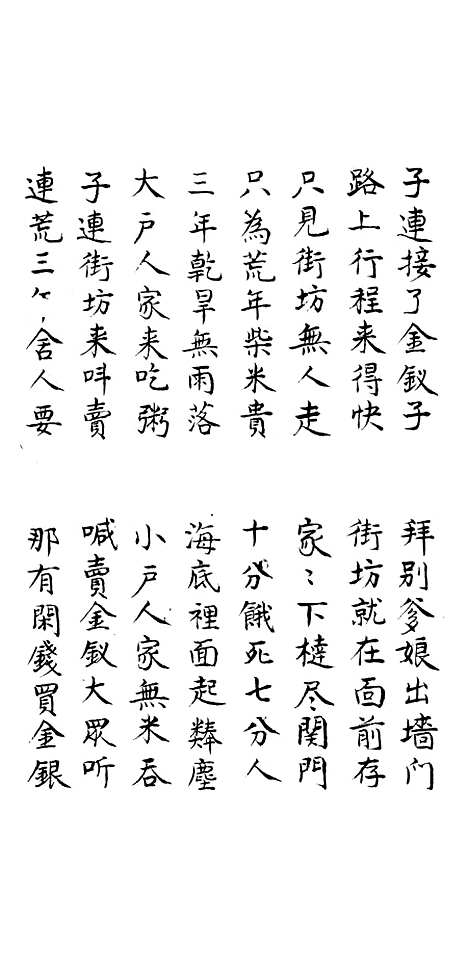 子連接了金釵子
拜别爹娘出墻门
路上行程来得快
街坊就在面前存
只見街坊無人走
家〻下橽尽関門
只為荒年柴米貴
十分餓死七分人
三年乾旱無雨落
海底裡面起塵
大户人家来吃粥
小户人家無米吞
子連街坊来呌賣
喊賣金釵大眾听
連荒三ケ、舍人要
那有閑錢買金銀